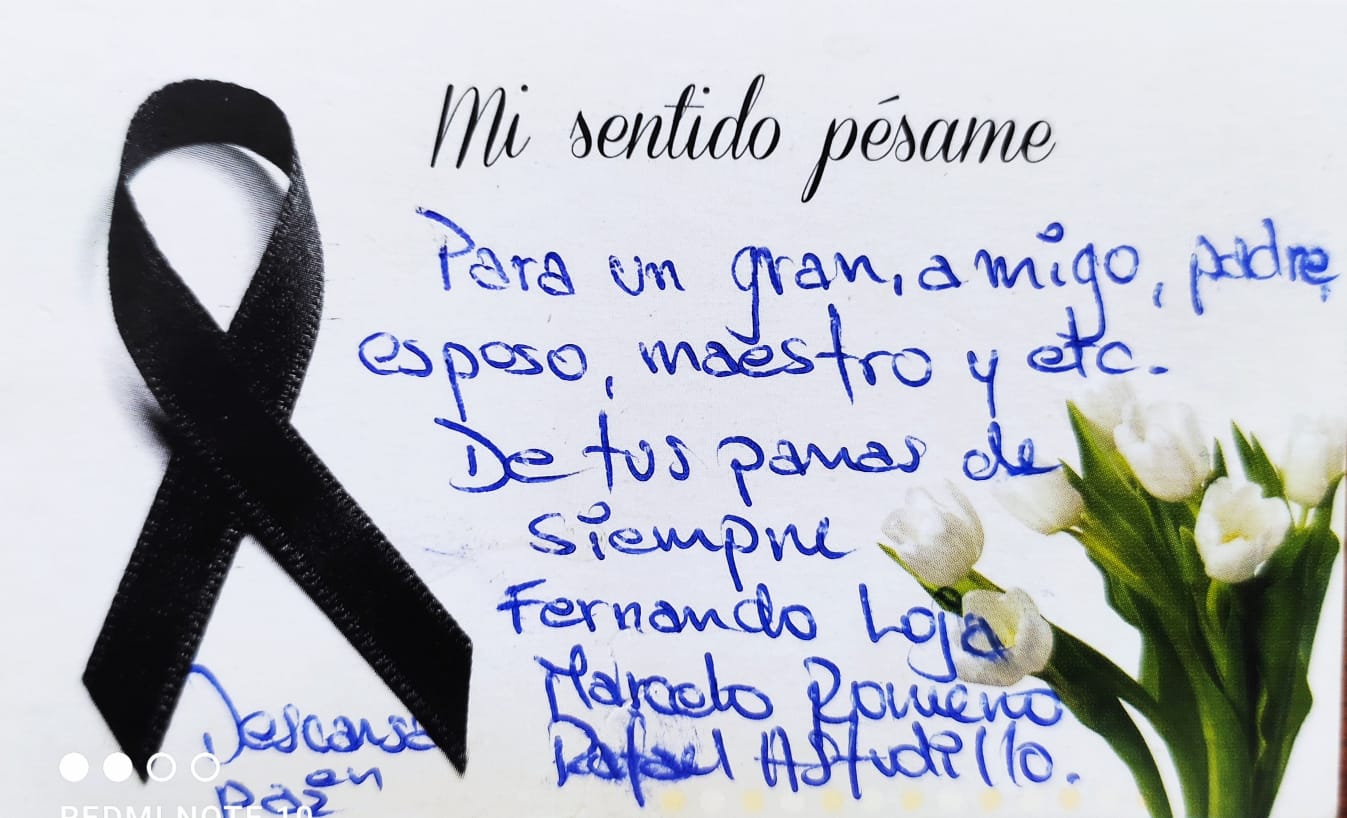 Mi sentido pésame
Para un gran, amigo, padre,
esposo, maestro y etc.
De tus panas de
siempre
Fernando Loja
Marcelo Romero
Rafael Astudillo.
Descansa
en
paz
REDMI NOTE 10